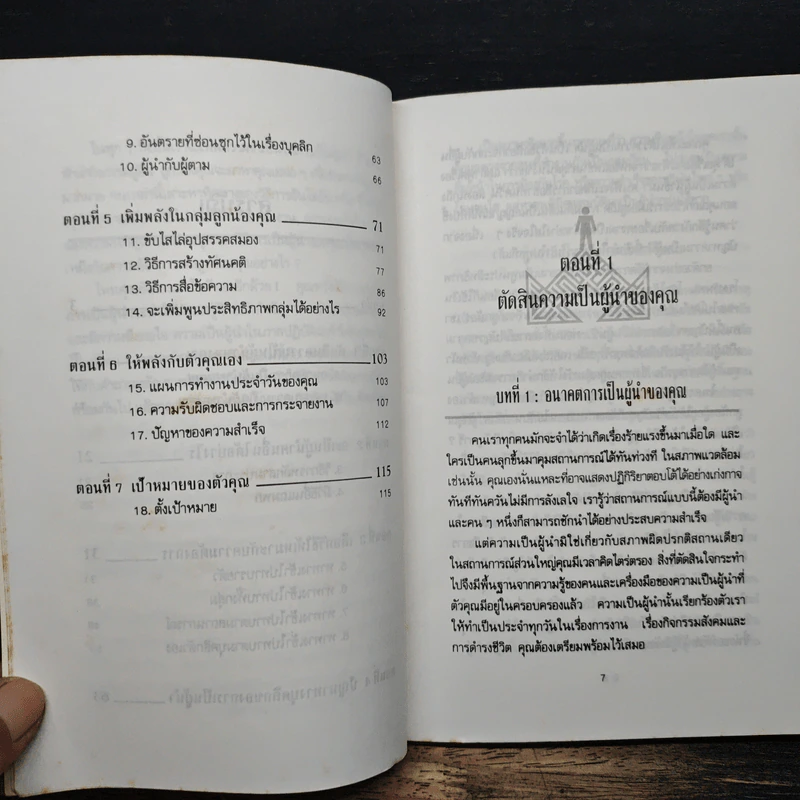 9. อันตรายที่ซ่อนซุกไว้ในเรื่องบุคลิก 63
10. ผู้นำกับผู้ตาม 66
ตอนที่ 5 เพิ่มพลังในกลุ่มลูกน้องคุณ 71
11. ขับไสไล่อุปสรรคสมอง 71
12. วิธีการสร้างทัศนคติ 77
13. วิธีการสื่อข้อความ 86
14. จะเพิ่มพูนประสิทธิภาพกลุ่มได้อย่างไร 92
ตอนที่ 6 ให้พลังกับตัวคุณเอง 103
15. แผนการทำงานประจำวันของคุณ 103
16. ความรับผิดชอบและการกระจายงาน 107
17. ปัญหาของความสำเร็จ 112
ตอนที่ 7 เป้าหมายของตัวคุณ 115
18. ตั้งเป้าหมาย 115
ตอนที่ 1
ตัดสินความเป็นผู้นำของคุณ
บทที่ 1 : อนาคตการเป็นผู้นำของคุณ
คนเราทุกคนมักจะจำได้ว่าเกิดเรื่องร้ายแรงขึ้นมาเมื่อใด และ
ใครเป็นคนลุกขึ้นมาคุมสถานการณ์ได้ทันท่วงที ในสภาพแวดล้อม
เช่นนั้น คุณเองนั่นแหละที่อาจแสดงปฏิกิริยาตอบโต้ได้อย่างเก่งกาจ
ทันทีทันควันไม่มีการลังเลใจ เรารู้ว่าสถานการณ์แบบนี้ต้องมีผู้นำ
และคน ๆ หนึ่งก็สามารถชักนำได้อย่างประสบความสำเร็จ
แต่ความเป็นผู้นำมิใช่เกี่ยวกับสภาพผิดปรกติสถานเดียว
ในสถานการณ์ส่วนใหญ่คุณมีเวลาคิดไตร่ตรอง สิ่งที่ตัดสินใจกระทำ
ไปจึงมีพื้นฐานจากความรู้ของคนและเครื่องมือของความเป็นผู้นำที่
ตัวคุณมีอยู่ในครอบครองแล้ว ความเป็นผู้นำนั้นเรียกร้องตัวเรา
ให้ทำเป็นประจำทุกวันในเรื่องการงาน เรื่องกิจกรรมสังคมและ
การดำรงชีวิต คุณต้องเตรียมพร้อมไว้เสมอ
7